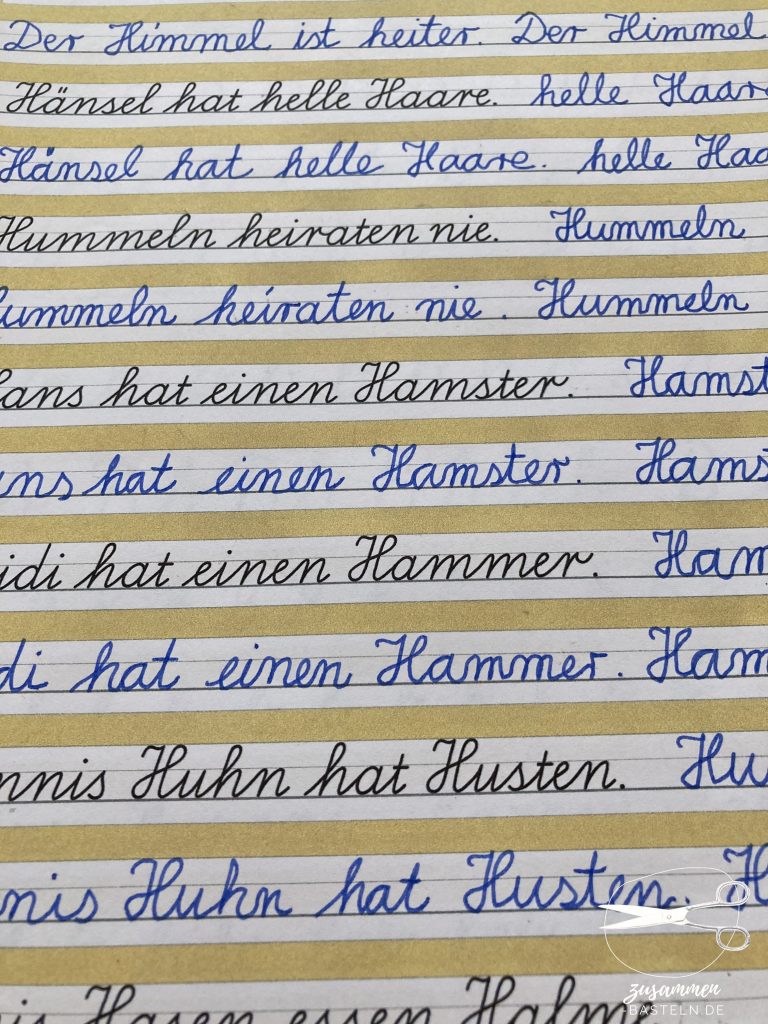 Der Himmel ist heiter. Der Himmel
Hänsel hat helle Haare. helle
Hänsel hat helle Haare. helle
Hummeln heiraten nie. Hummeln
heiraten nie. Hummeln
hat einen Hamster.
hat einen Hamster.
hat einen Hammer.
hat einen Hammer.
Huhn hat Husten.
Huhn hat Husten.
Hasen essen
zusammen
-BASTELN.DE